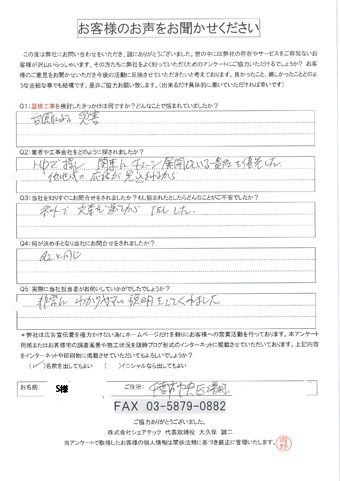 お客様のお声をお聞かせください
この度は弊社にお問い合わせをいただき、誠にありがとうございました。世の中には弊社の存在やサービスをご存知ないお
客様が沢山いらっしゃいます。その方たちに弊社をよく知っていただくためのアンケートにご協力いただけるでしょうか？お
客様のご意見をお聞かせいただき今後の活動に反映させていただきたいと考えております。良かったこと、嬉しかったことどのよ
うな些細な事でも結構です。是非ご協力お願い致します。（出来るだけ具体的に書いていただければ幸いです）
Q1：屋根工事を検討したきっかけは何ですか？どんなことで悩まれていましたか？
台風による 災害
Q2：業者や工事会社をどのように探されましたか？
HPで探し 関東にチェーン展開している
Q3：当社を知りすぐにお問合せをされましたか？もし悩まれたとしたらどんなことがご不安でしたか？
TELした。
Q4：何が決め手となり当社にお問合せをされましたか？
Q2と同じ
Q5：実際に当社担当者がお伺いしていかがでしたでしょうか？
非常に わかりやすい 説明をしてくれました
＊弊社は広告宣伝費を極力かけない為にホームページだけを頼りにお客様への営業活動を行っております。本アンケート
用紙またはお客様宅の調査風景や施工状況を随時ブログ形式のインターネットに掲載させていただいております。上記内容
をインターネットや印刷物に掲載させていただいてもよろしいでしょうか？
（✓）名前を出してもよい （ ）イニシャルなら出してもよい
お名前： S様 ご住所： 千葉市中央区
FAX 03-5879-0882
ご協力ありがとうございました。
株式会社シェアテック 代表取締役 大久保 誠二
当アンケートで取得したお客様の個人情報は関係法規に基づき厳正に管理いたします。